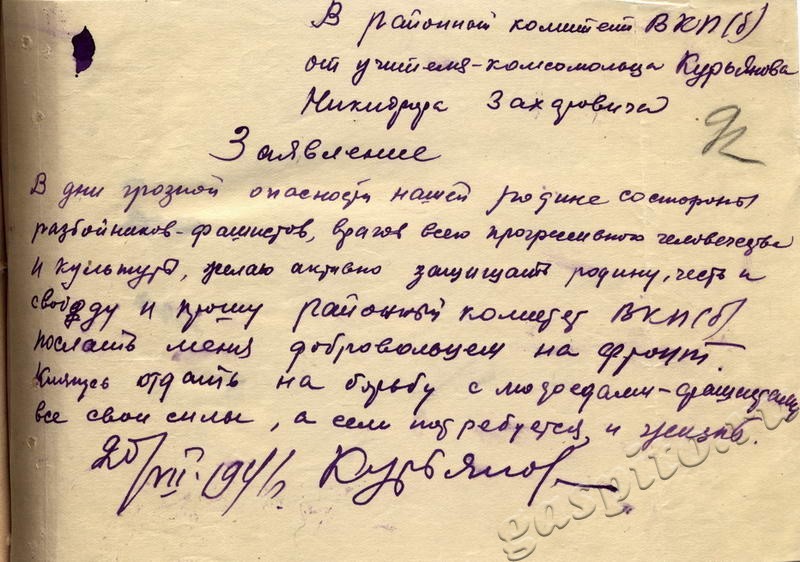 В районный комитет ВКП(б)
от учителя-комсомольца Курьянова
Никифора Захаровича
Заявление
В дни грозной опасности нашей родине состороны
разбойников-фашистов, врагов всего прогрессивного человечества
и культуры, желаю активно защищать родину, честь и
свободу и прошу районный комитет ВКП(б)
послать меня добровольцем на фронт.
Клянусь отдать на борьбу с людоедами-фашистами
все свои силы, а если потребуется и жизнь.
VII-1941г. Курьянов
gaspito.ru